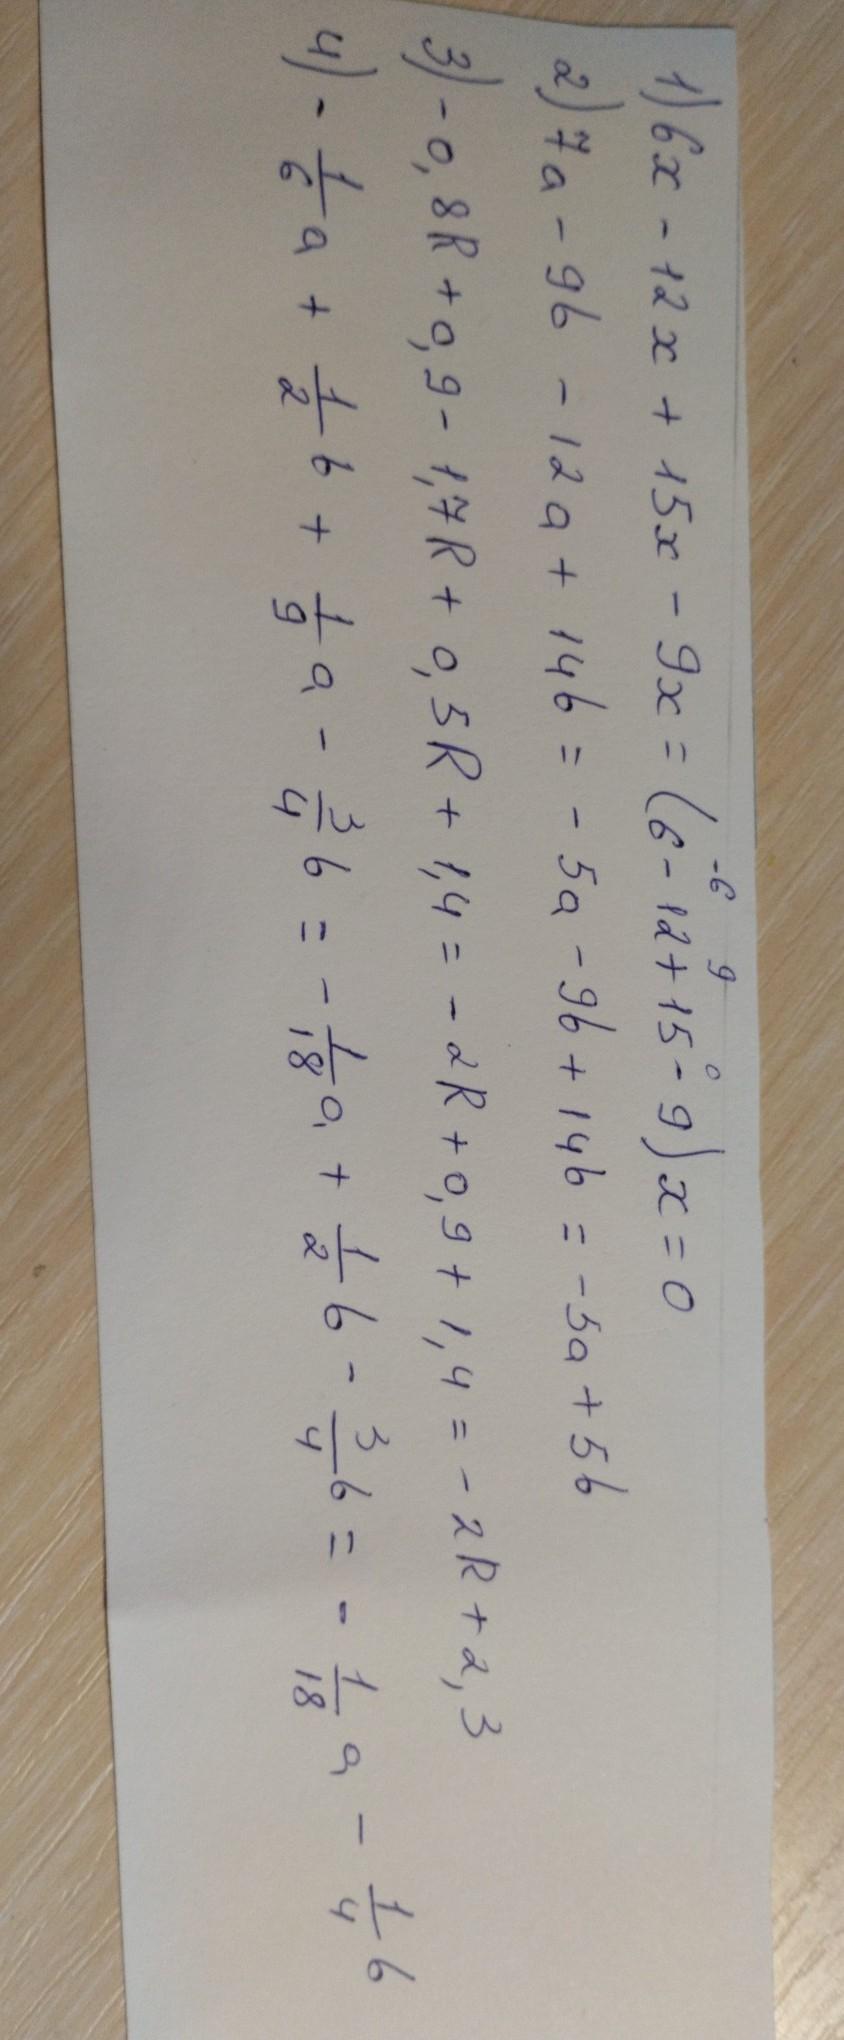 1) 6x - 12x + 15x - 9x = (6 - 12 + 15 - 9) x = 0
-6 9 0
2) 7a - 9b - 12a + 14b = - 5a - 9b + 14b = - 5a + 5b
3) - 0,8k + 0,9 - 1,7k + 0,5k + 1,4 = - 2k + 0,9 + 1,4 = - 2k + 2,3
4) - 1/6 a + 1/2 b + 1/9 a - 3/4 b = - 1/18 a + 1/2 b - 3/4 b = - 1/18 a - 1/4 b